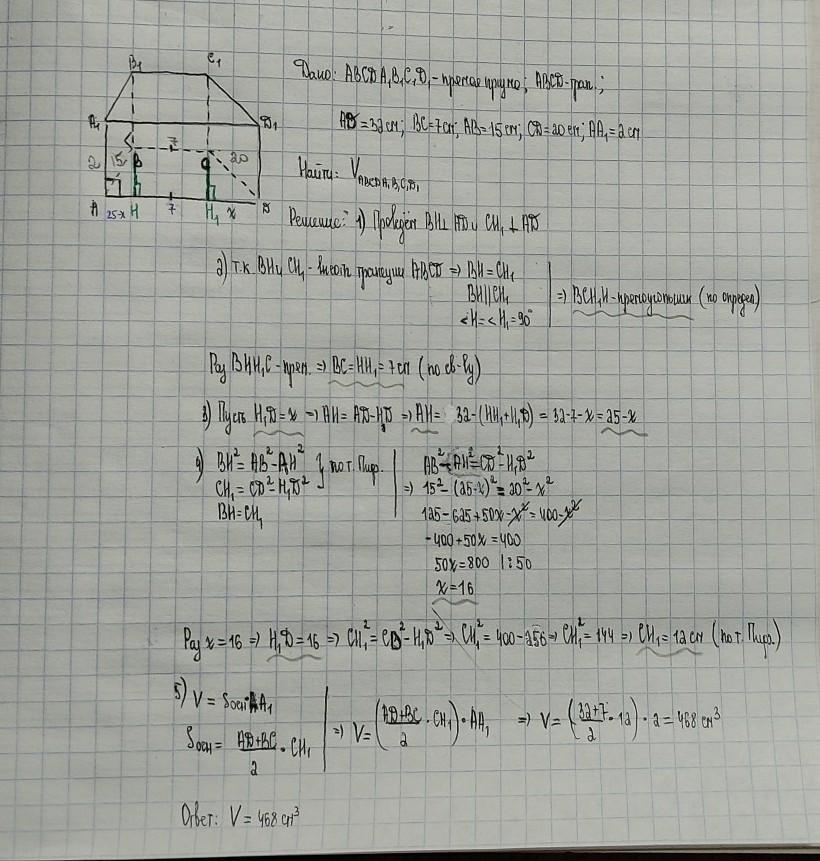 B₁ C₁
A₁ D₁
2 15 B 7 C 20
A 25-x H 7 H₁ x D
Дано: ABCDA₁B₁C₁D₁ - прямая призма; ABCD-трап.;
AD = 32 см; BC = 7 см; AB = 15 см; CD = 20 см; AA₁ = 2 см
Найти: V ABCDA₁B₁C₁D₁
Решение: 1) Проведём BH ⊥ AD и CH₁ ⊥ AD
2) т.к BH и CH₁ - высот трапеции ABCD => BH = CH₁
BH || CH₁
<H = <H₁ = 90°
=> BCH₁H - прямоугольник (по определ)
Раз BHH₁C - прям. => BC = HH₁ = 7 см (по св-ву)
3) Пусть H₁D = x => AH = AD - HD => AH = 32 - (HH₁ + H₁D) = 32 - 7 - x = 25 - x
4) BH² = AB² - AH²
CH₁ = CD² - H₁D²
} по т. Пиф.
BH = CH₁
AB² - AH² = CD² - H₁D²
=> 15² - (25-x)² = 20² - x²
125 - 625 + 50x - x² = 400 - x²
-400 + 50x = 400
50x = 800 | : 50
x = 16
Раз x = 16 => H₁D = 16 => CH₁² = CD² - H₁D² => CH₁² = 400 - 256 => CH₁² = 144 => CH₁ = 12 см (по т. Пифа.)
5) V = Sосн · AA₁
Sосн = (AD + BC)/2 · CH₁
=> V = ((AD + BC)/2 · CH₁) · AA₁ => V = ((32 + 7)/2 · 12) · 2 = 468 см³
Ответ: V = 468 см³